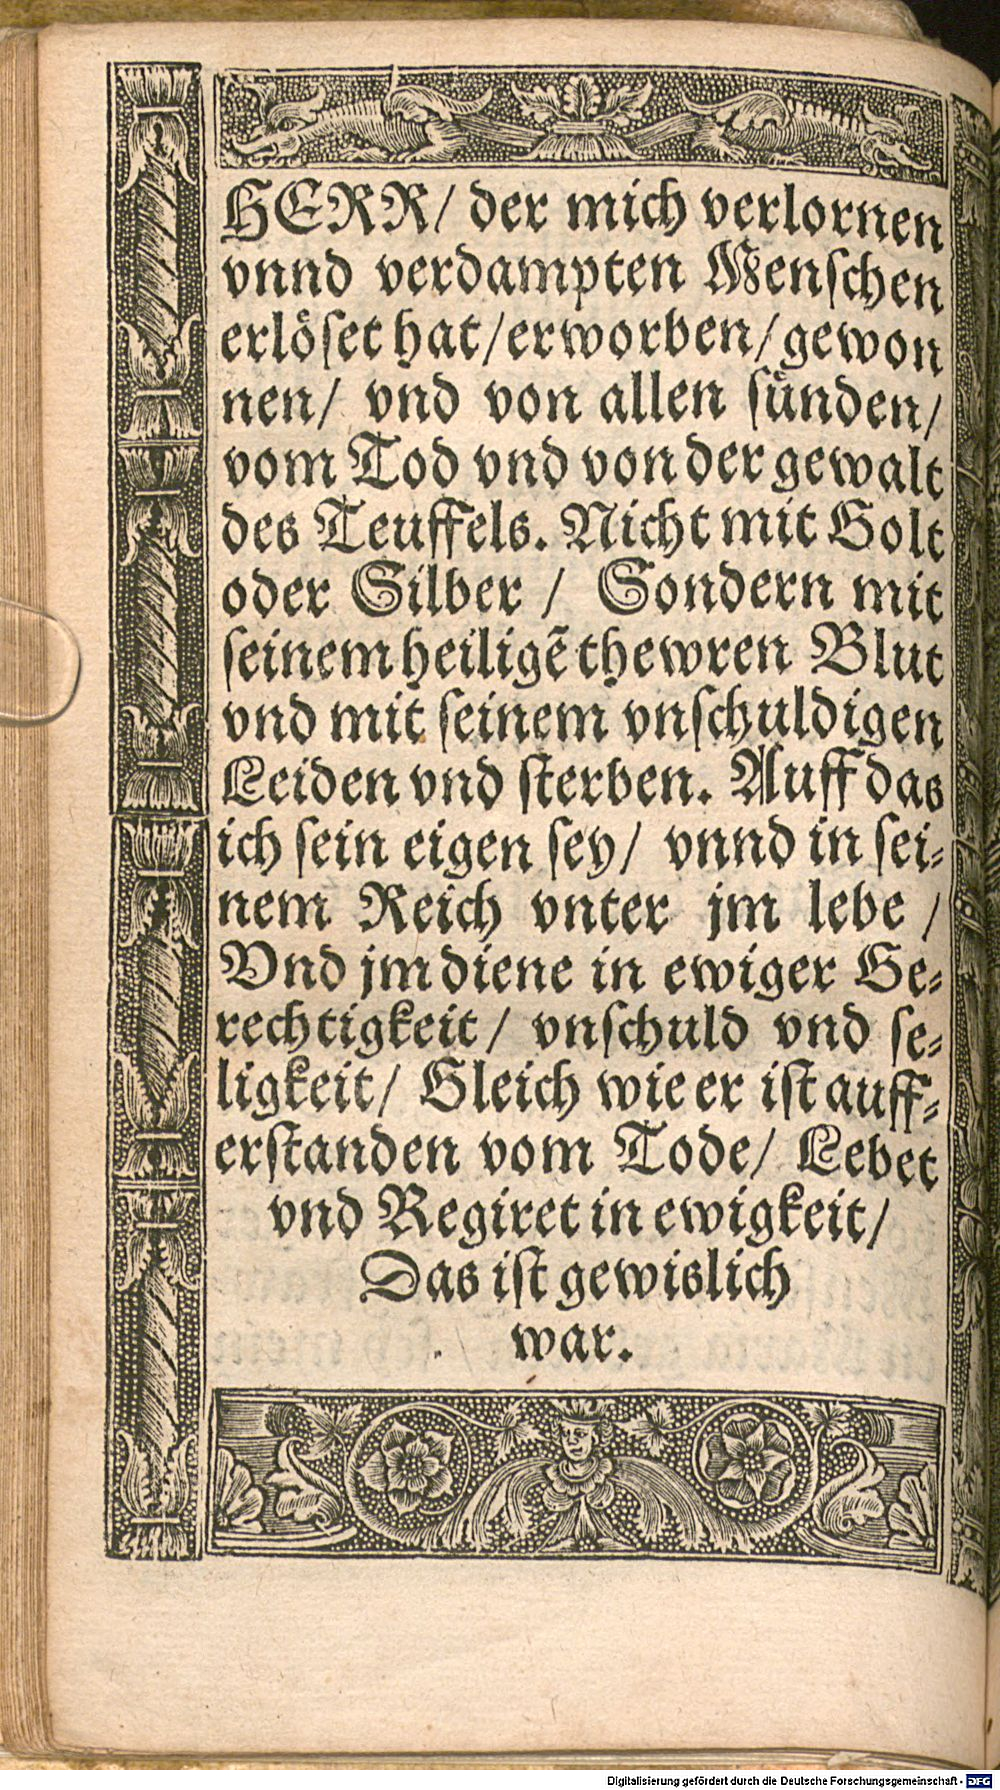 HERR/ der mich verlornen
vnnd verdampten Menschen
erlöſet hat/erworben/gewon
nen/ vnd von allen ſuͤnden/
vom Tod vnd von der gewalt
des Teuffels. Nicht mit Golt
oder Silber / Sondern mit
ſeinem heiligẽ thewren Blut
vnd mit ſeinem vnſchuldigen
Leiden vnd ſterben. Auff das
ich ſein eigen ſey/ vnnd in ſei⸗
nem Reich vnter jm lebe /
Vnd jm diene in ewiger Ge⸗
rechtigkeit/ vnſchuld vnd ſe⸗
ligkeit/ Gleich wie er iſt auff⸗
erſtanden vom Tode/ Lebet
vnd Regiret in ewigkeit/
Das iſt gewislich
war.
Digitalisierung gefördert durch die Deutsche Forschungsgemeinschaft - DFG